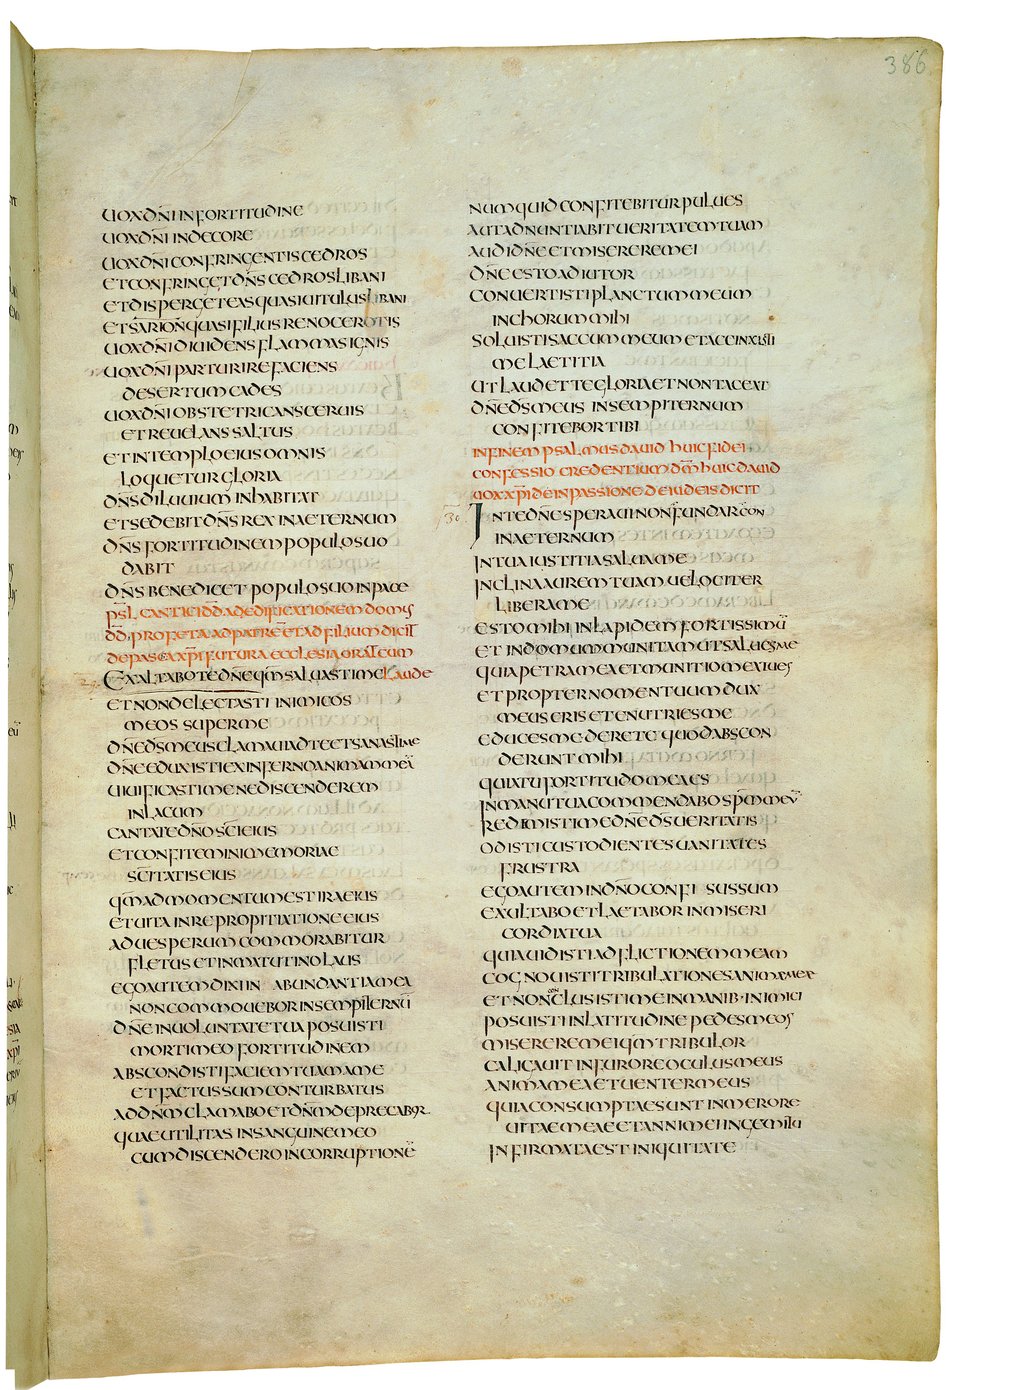 386
UOX DÑI IN FORTITUDINE
UOX DÑI IN DECORE
UOX DÑI CONFRINGENTIS CEDROS
ET CONFRINGET DÑS CEDROS LIBANI
ET DISPERGET EAS QUASI UITULUS LIBANI
ET SARION QUASI FILIUS RENOCEROTIS
UOX DÑI DIUIDENS FLAMMAS IGNIS
UOX DÑI PARTURIRE FACIENS
DESERTUM CADES
UOX DÑI OBSTETRICANS CERUIS
ET REUELANS SALTUS
ET IN TEMPLO EIUS OMNIS
LOQUETUR GLORIA
DÑS DILUUIUM INHABITAT
ET SEDEBIT DÑS REX IN AETERNUM
DÑS FORTITUDINEM POPULO SUO
DABIT
DÑS BENEDICET POPULO SUO IN PACE
PSL CANTICI DD AD EDIFICATIONEM DOMUS
DD PROFETA AD PATRE ET AD FILIUM DICIT
DE PASCA XPI FUTURA ECCLESIA ORAT CUM
EXALTABO TE DÑE QM̄ SALUASTI ME LAUDE
ET NON DELECTASTI INIMICOS
MEOS SUPER ME
DÑE DS MEUS CLAMAUI AD TE ET SANASTI ME
DÑE EDUXISTI EX INFERNO ANIMAM MEĀ
UIUIFICASTI ME NE DISCENDEREM
IN LACUM
CANTATE DÑO SCI EIUS
ET CONFITEMINI MEMORIAE
SCITATIS EIUS
QM̄ AD MOMENTUM EST IRA EIUS
ET UITA IN REPROPITIATIONE EIUS
AD UESPERUM COMMORABITUR
FLETUS ET IN MATUTINO LAUS
EGO AUTEM DIXI IN ABUNDANTIA MEA
NON COMMOUEBOR IN SEMPITERNŪ
DÑE IN UOLUNTATE TUA POSUISTI
MORTI MEO FORTITUDINEM
ABSCONDISTI FACIEM TUAM A ME
ET FACTUS SUM CONTURBATUS
AD DÑM CLAMABO ET DÑM DEPRECABOR
QUAE UTILITAS IN SANGUINE MEO
CUM DISCENDERO IN CORRUPTIONĒ
NUMQUID CONFITEBITUR PULUES
AUT ADNUNTIABIT UERITATEM TUAM
AUDI DÑE ET MISERERE MEI
DÑE ESTO ADIUTOR
CONUERTISTI PLANCTUM MEUM
IN CHORUM MIHI
SOLUISTI SACCUM MEUM ET ACCINXISTI
ME LAETITIA
UT LAUDET TE GLORIA ET NON TACEAT
DÑE DS MEUS IN SEMPITERNUM
CONFITEBOR TIBI
IN FINEM PSALMUS DAUID HUIC FIDEI
CONFESSIO CREDENTIUM DM̄ HUIC DAUID
UOX XPI DE IN PASSIONE DE IUDEIS DICIT
IN TE DÑE SPERAUI NON FUNDAR CON
IN AETERNUM
IN TUA IUSTITIA SALUA ME
INCLINA AUREM TUAM UELOCITER
LIBERA ME
ESTO MIHI IN LAPIDEM FORTISSIMŪ
ET IN DOMUM MUNITAM UT SALUES ME
QUIA PETRA MEA ET MUNITIO MEA TU ES
ET PROPTER NOMEN TUUM DUX
MEUS ERIS ET ENUTRIES ME
EDUCES ME DE RETE QUOD ABSCON
DERUNT MIHI
QUIA TU FORTITUDO MEA ES
IN MANU TUA COMMENDABO SPM̄ MEŪ
REDIMISTI ME DÑE DS UERITATIS
ODISTI CUSTODIENTES UANITATES
FRUSTRA
EGO AUTEM IN DÑO CONFISUS SUM
EXULTABO ET LAETABOR IN MISERI
CORDIA TUA
QUIA UIDISTI ADFLICTIONEM MEAM
COGNOUISTI TRIBULATIONES ANIMAE MEAE
ET NON CONCLUSISTI ME IN MANIB· INIMICI
POSUISTI IN LATITUDINE PEDES MEOS
MISERERE MEI QM̄ TRIBULOR
CALIGAUIT IN FURORE OCULUS MEUS
ANIMA MEA ET UENTER MEUS
QUIA CONSUMPTAE SUNT IN MERORE
UITAE MEAE ET ANNI MEI IN GEMITU
INFIRMATA EST INIQUITATE